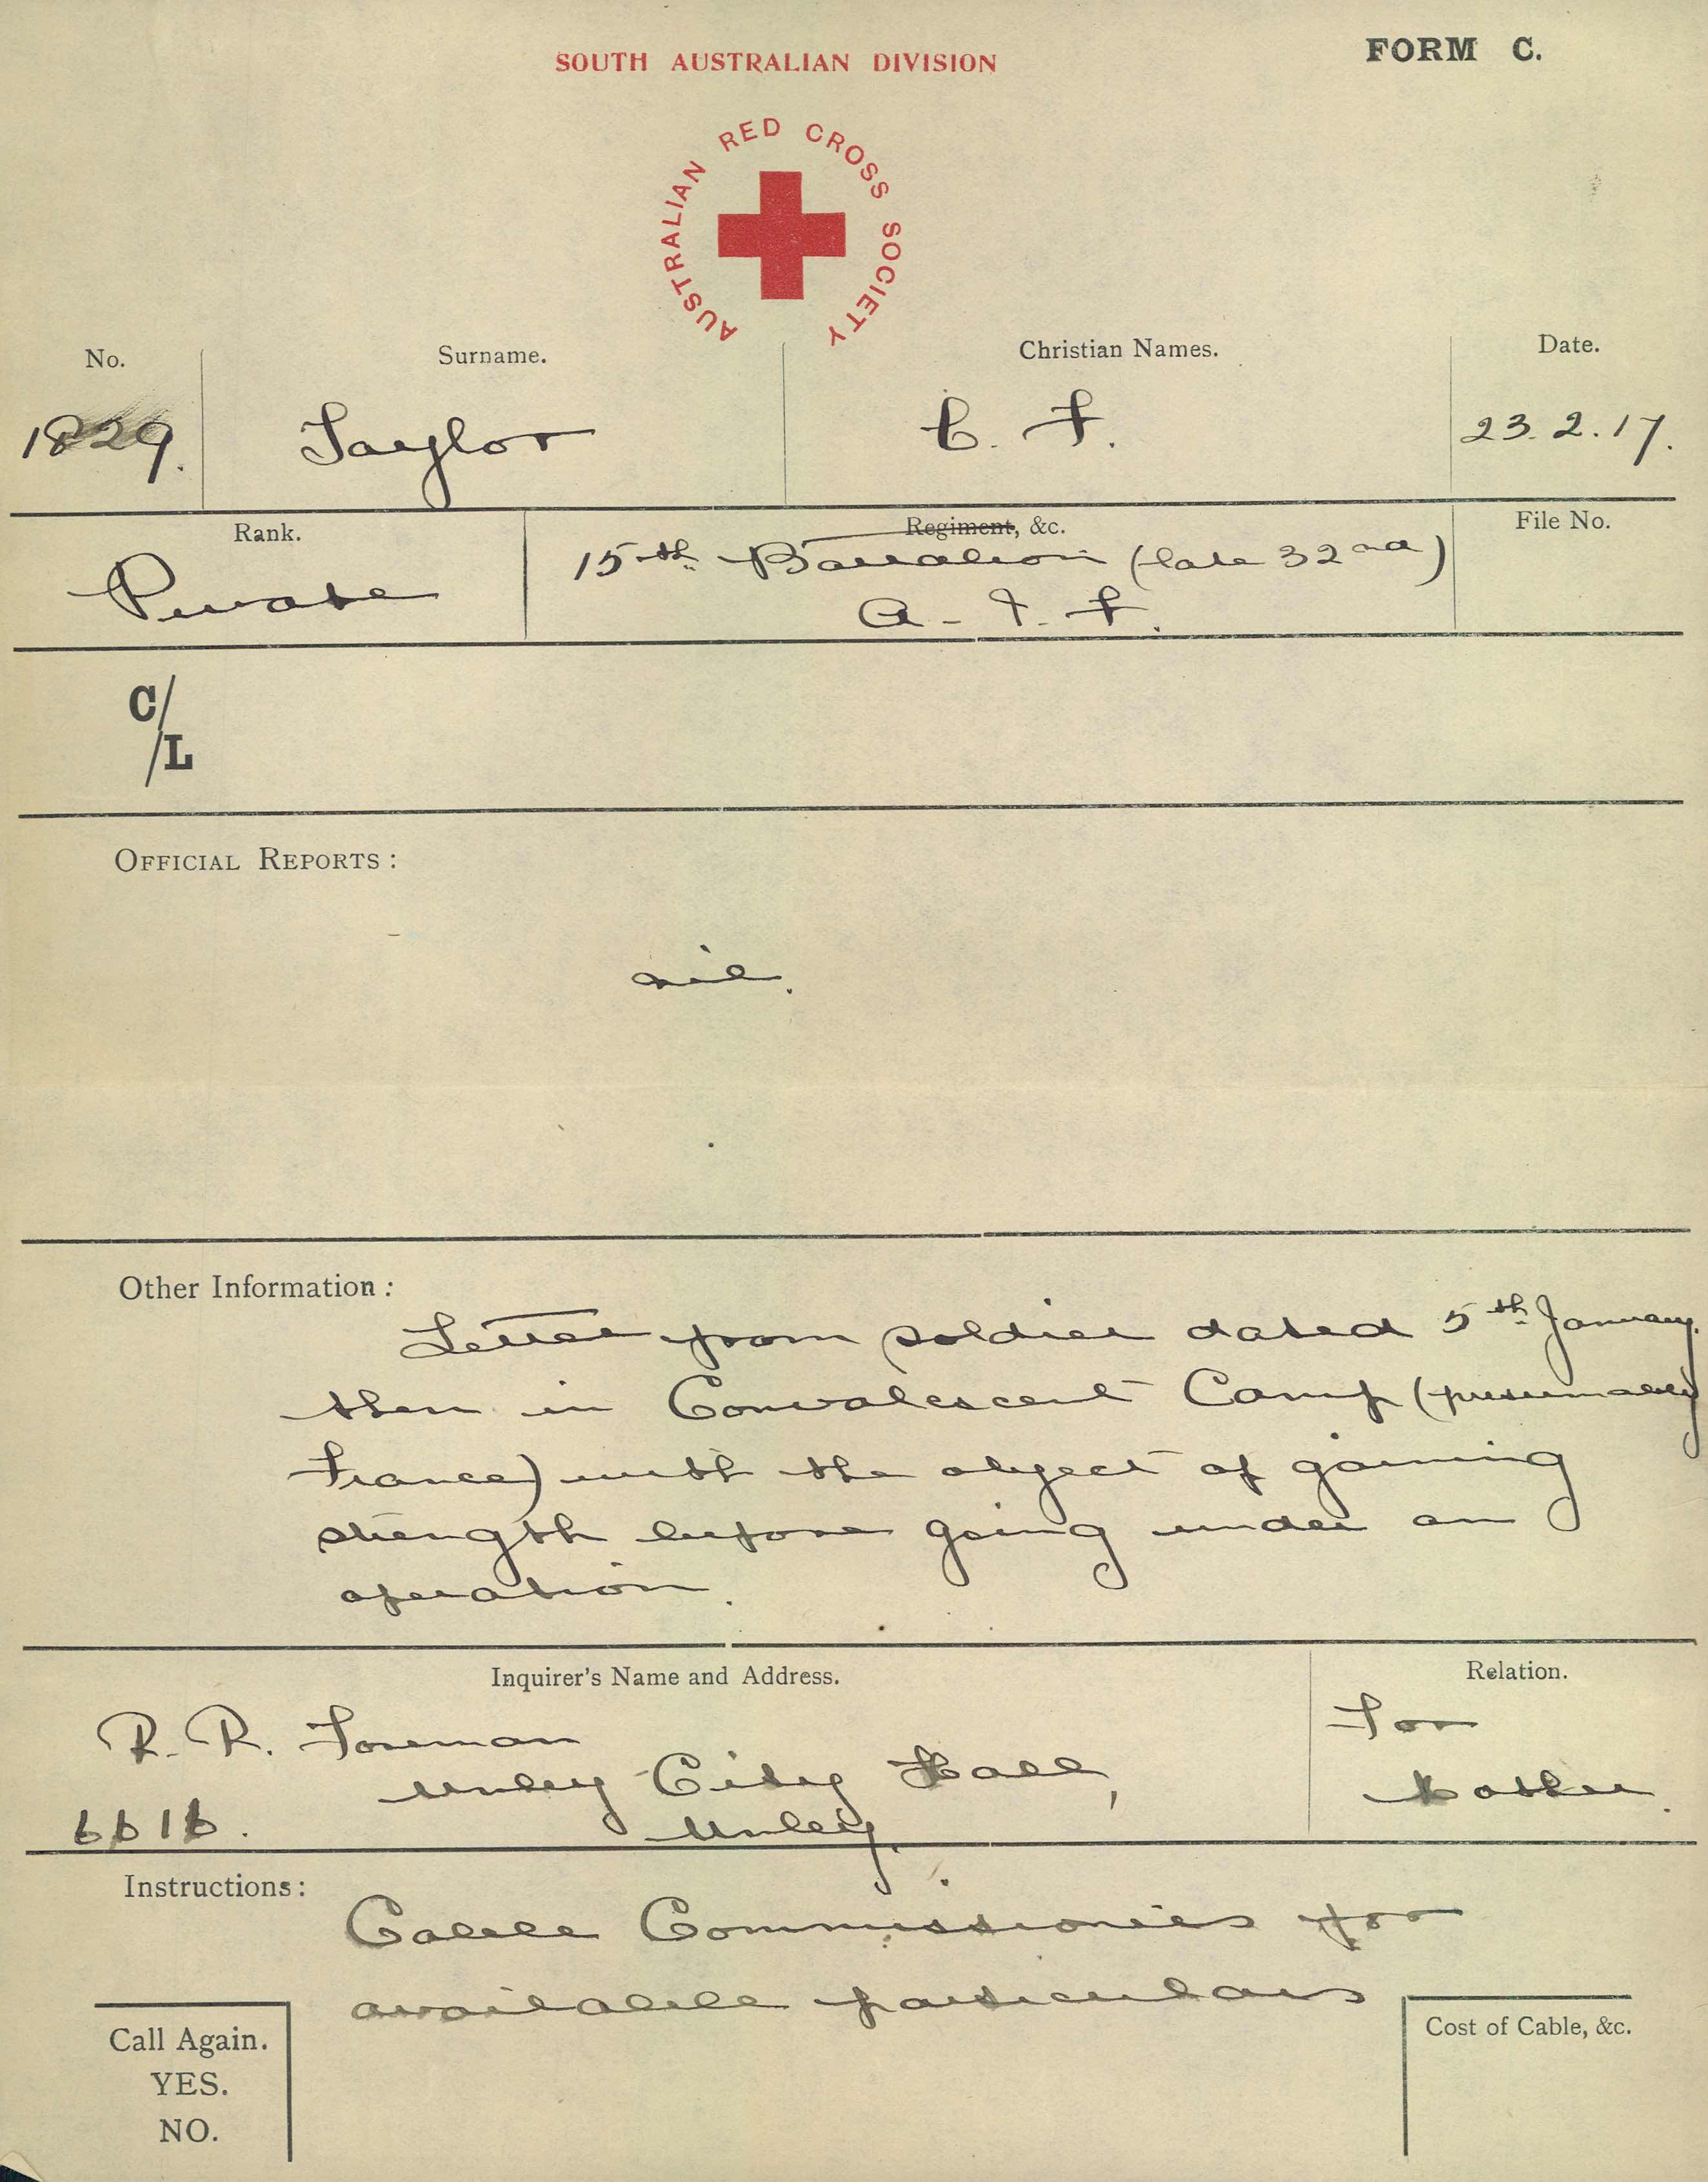 SOUTH AUSTRALIAN DIVISION
FORM C.
AUSTRALIAN RED CROSS SOCIETY
No. Surname. Christian Names. Date.
1829. Taylor C. F. 23.2.17.
Rank. Regiment, &c. File No.
Private 15th Battalion (late 32nd)
A.I.F.
C/L
OFFICIAL REPORTS:
nil.
Other Information:
Letter from soldier dated 5th January.
then in Convalescent Camp (presumably
France) with the object of gaining
strength before going under an
operation.
Inquirer's Name and Address. Relation.
R. R. Foreman For
Unley City Hall, Mother.
6616. Unley.
Instructions:
Cable Commissioners for
available particulars
Call Again.
YES.
NO.
Cost of Cable, &c.